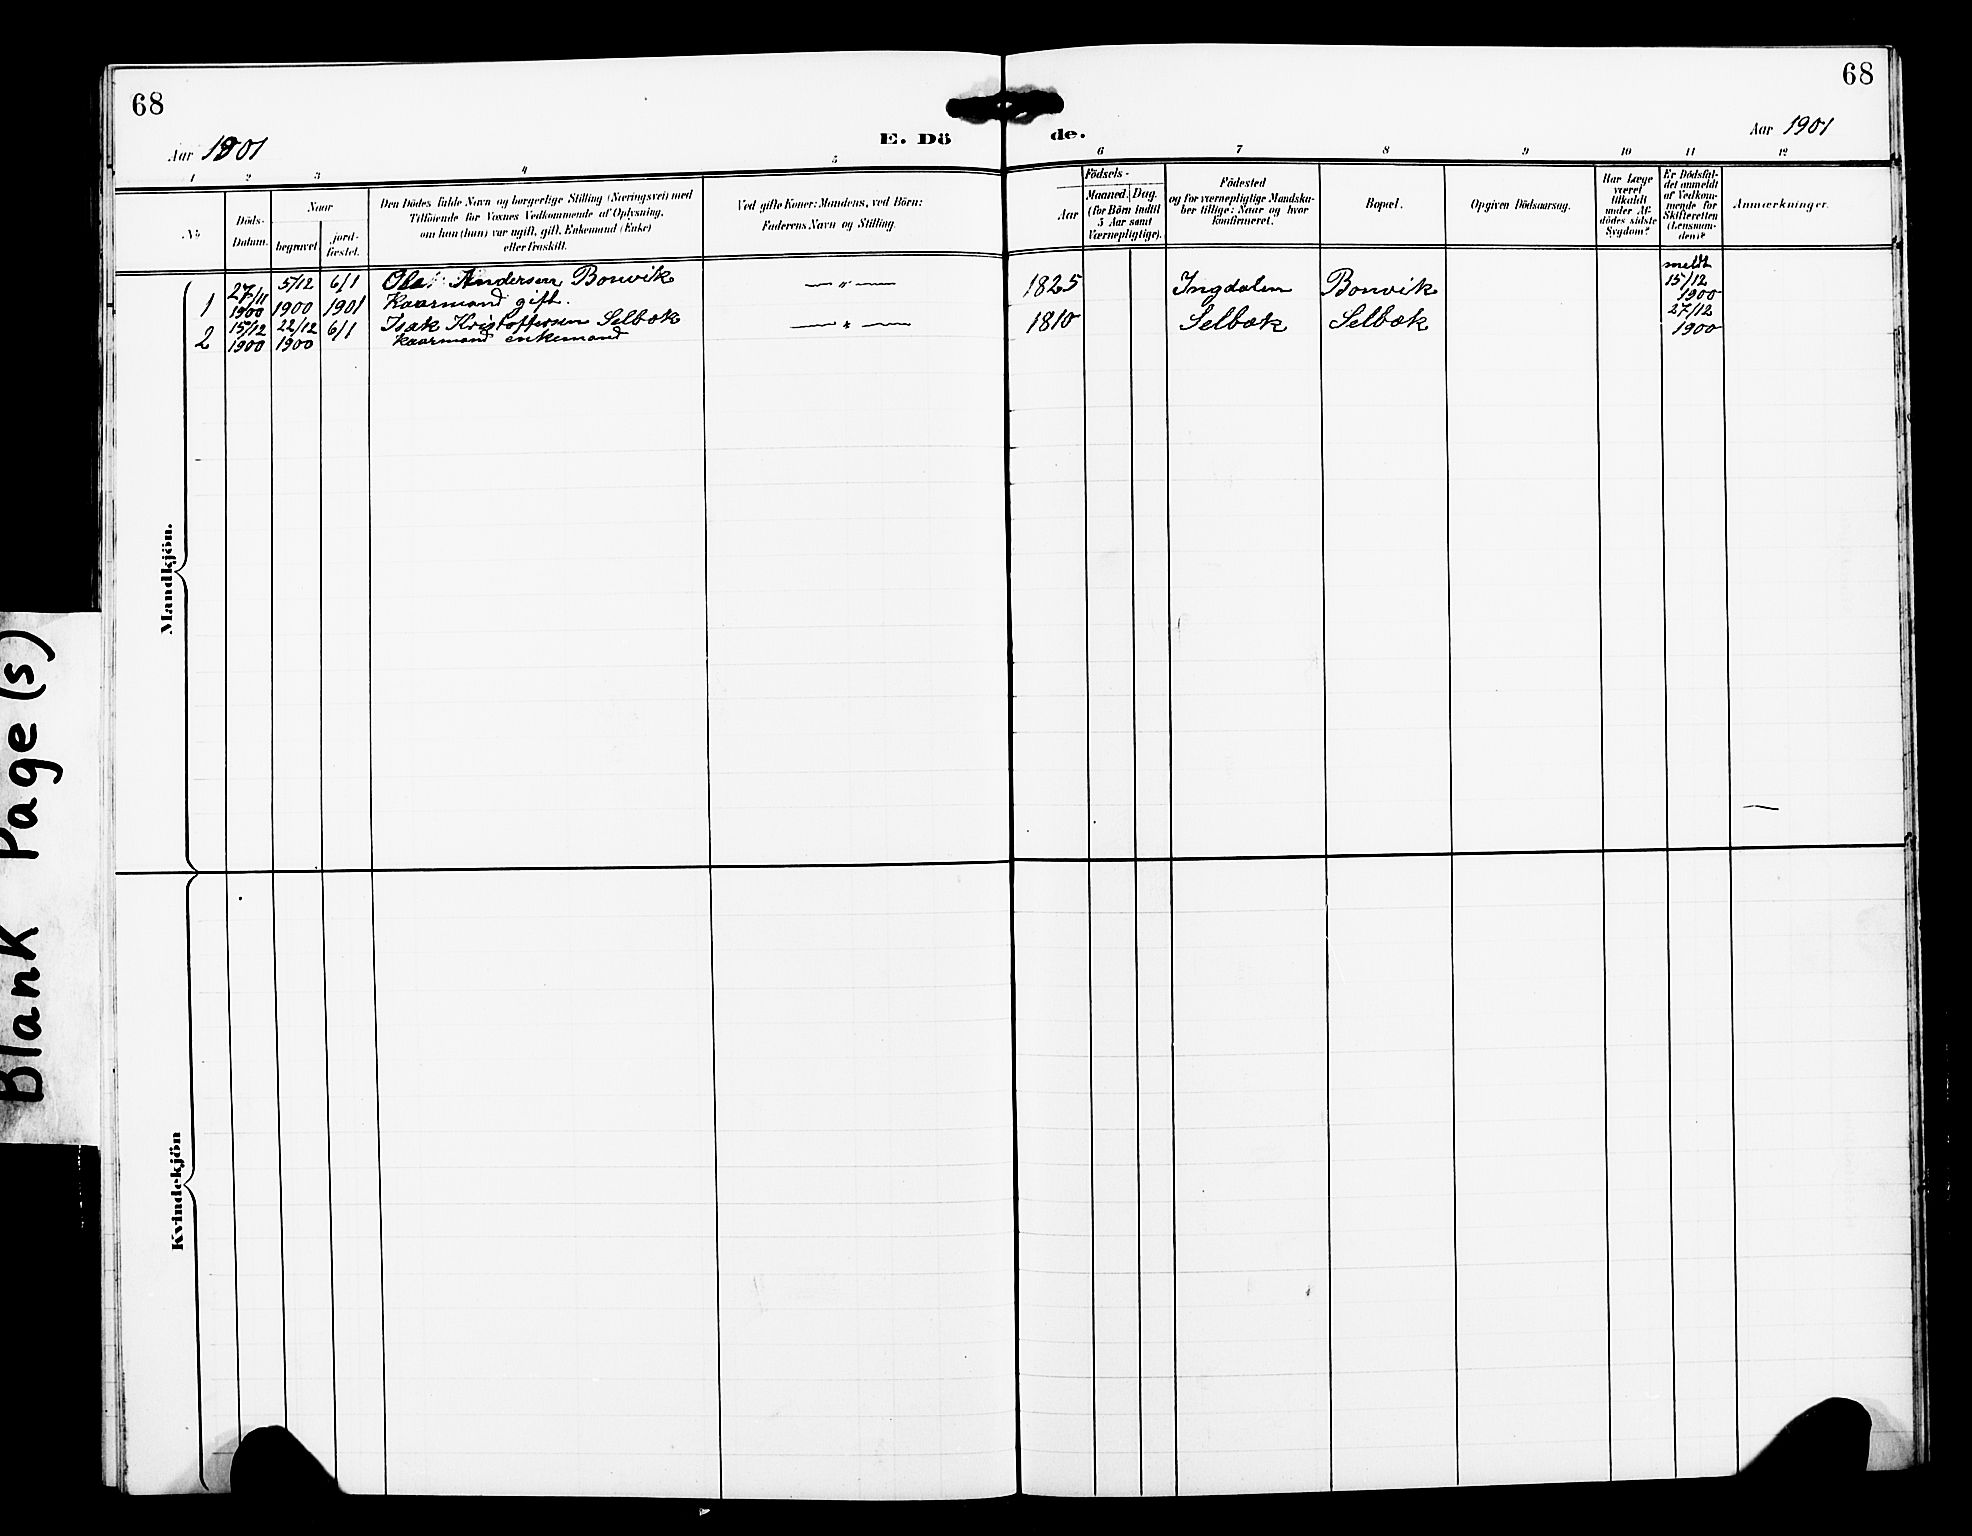 68
68
E. Dö de.
Aar 1901
Aar 1901
1 2 3 4 5 6 7 8 9 10 11 12
No
Döds-
Datum.
Naar
begravet
jord-
fæstet.
Den Dödes fulde Navn og borgerlige Stilling (Næringsvei) med
Tilföiende for Voxnes Vedkommende af Oplysning,
om han (hun) var ugift, gift, Enkemand (Enke)
eller fraskilt.
Ved gifte Koner: Mandens, ved Börn:
Faderens Navn og Stilling.
Födsels-
Aar
Maaned.
Dag.
(for Börn indtil
5 Aar samt
Værnepligtige).
Födested
og for værnepligtige Mandska-
ber tillige: Naar og hvor
konfirmeret.
Bopæl.
Opgiven Dödsaarsag.
Har Læge
været
tilkaldt
under Af-
dödes sidste
Sygdom?
Er Dödsfal-
det anmeldt
af Vedkom-
mende for
Skifteretten
(Lensman-
den)?
Anmærkninger.
Mandkjön.
1
27/11
1900
5/12
1900
6/1
1901
Ole Andersen Bonvik
Kaarmand gift.
— " —
1825
Ingdalen
Bonvik
meldt
15/12
1900
2
15/12
1900
22/12
1900
6/1
Isak Kristoffersen Selbæk
Kaarmand enkemand
— " —
1810
Selbæk
Selbæk
27/12
1900
Kvindekjön
Blank Page(s)